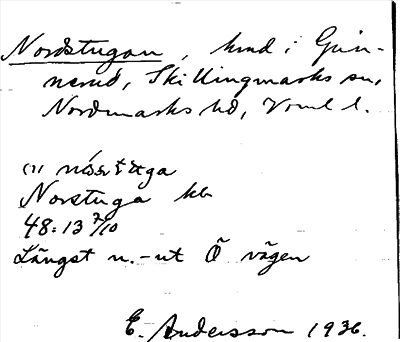 Nordstugan, hmd i Gun-
nerud, Skillingmarks sn,
Nordmarks hd, Vrml l.
(1) nó̀rstuga
Norstuga kb
48:13 7/10
Längst n.-ut Ö vägen
E. Andersson 1936.